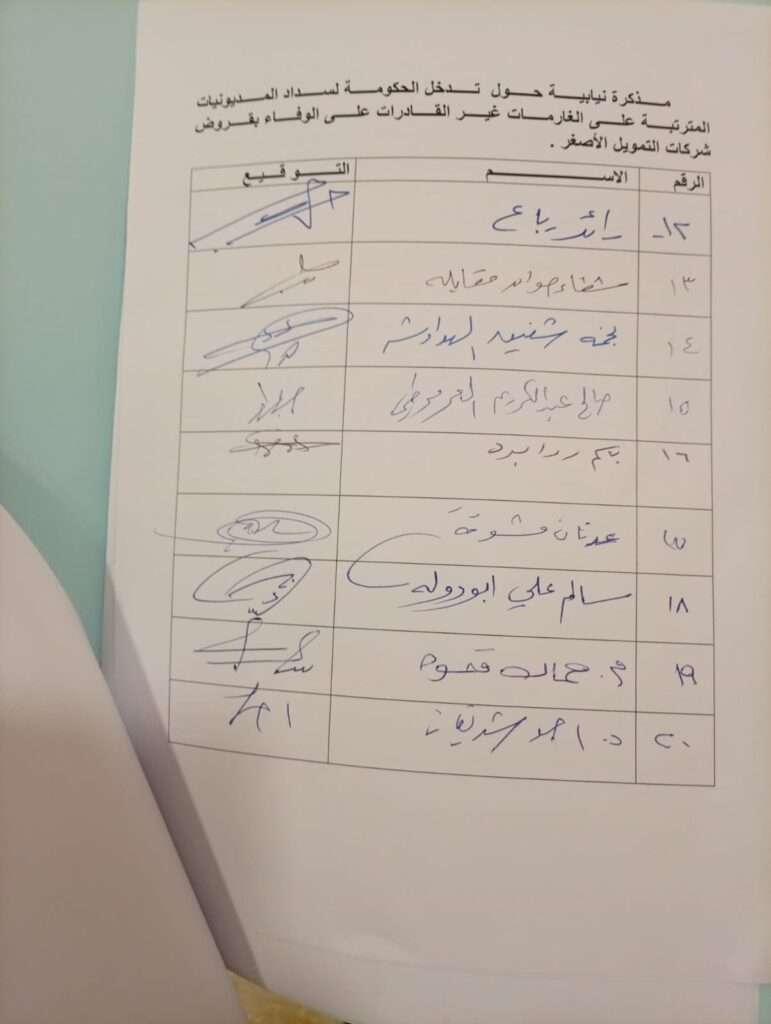 مذكرة نيابية حول تدخل الحكومة لسداد المديونيات
المترتبة على الغارمات غير القادرات على الوفاء بقروض
شركات التمويل الأصغر .
الرقم الاسم التوقيع
١٢- رائد رباع
١٣ شفاء صوان مقابله
١٤ نجمه شفيق الهواوشه
١٥ صالح عبدالكريم العرموطي
١٦
١٧ عدنان مشوقة
١٨ سالم علي ابودوله
١٩ م. جمال قموه
٢٠ د. احمد